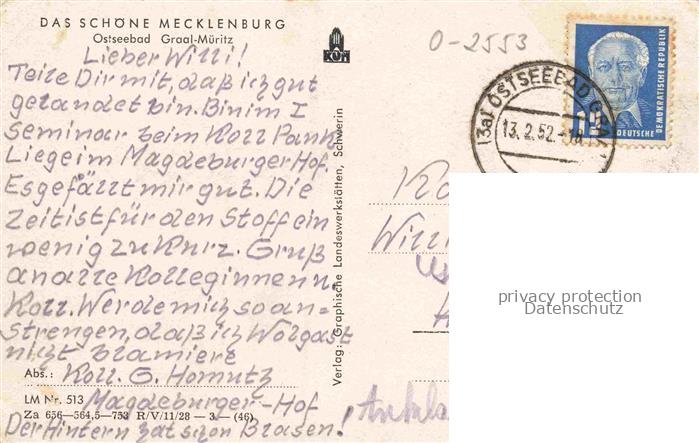 DAS SCHÖNE MECKLENBURG
Ostseebad Graal-Müritz
Lieber Willi!
Teile Dir mit, daß ich gut
gelandet bin. Bin im I
Seminar beim Koll Pank
Liege im Magdeburger Hof.
Es gefällt mir gut. Die
Zeit ist für den Stoff ein
wenig zu kurz. Gruß
an alle Kolleginnen u.
Koll. Werde mich so an=
strengen, daß ich Wolgast
nicht blamiere
Abs.: Koll. G. Homutz
LM Nr. 513 Magdeburger-Hof
Za 656—564,5—753 R/V/11/28 — 3. — (46)
Der Hintern hat schon Blasen!
Verlag: Graphische Landeswerkstätten, Schwerin
KÖM
O-2553
(3a) OSTSEEBAD GRA
13.2.52.
DEUTSCHE
DEMOKRATISCHE REPUBLIK
12
Ko
Willi
Ankla
privacy protection
Datenschutz